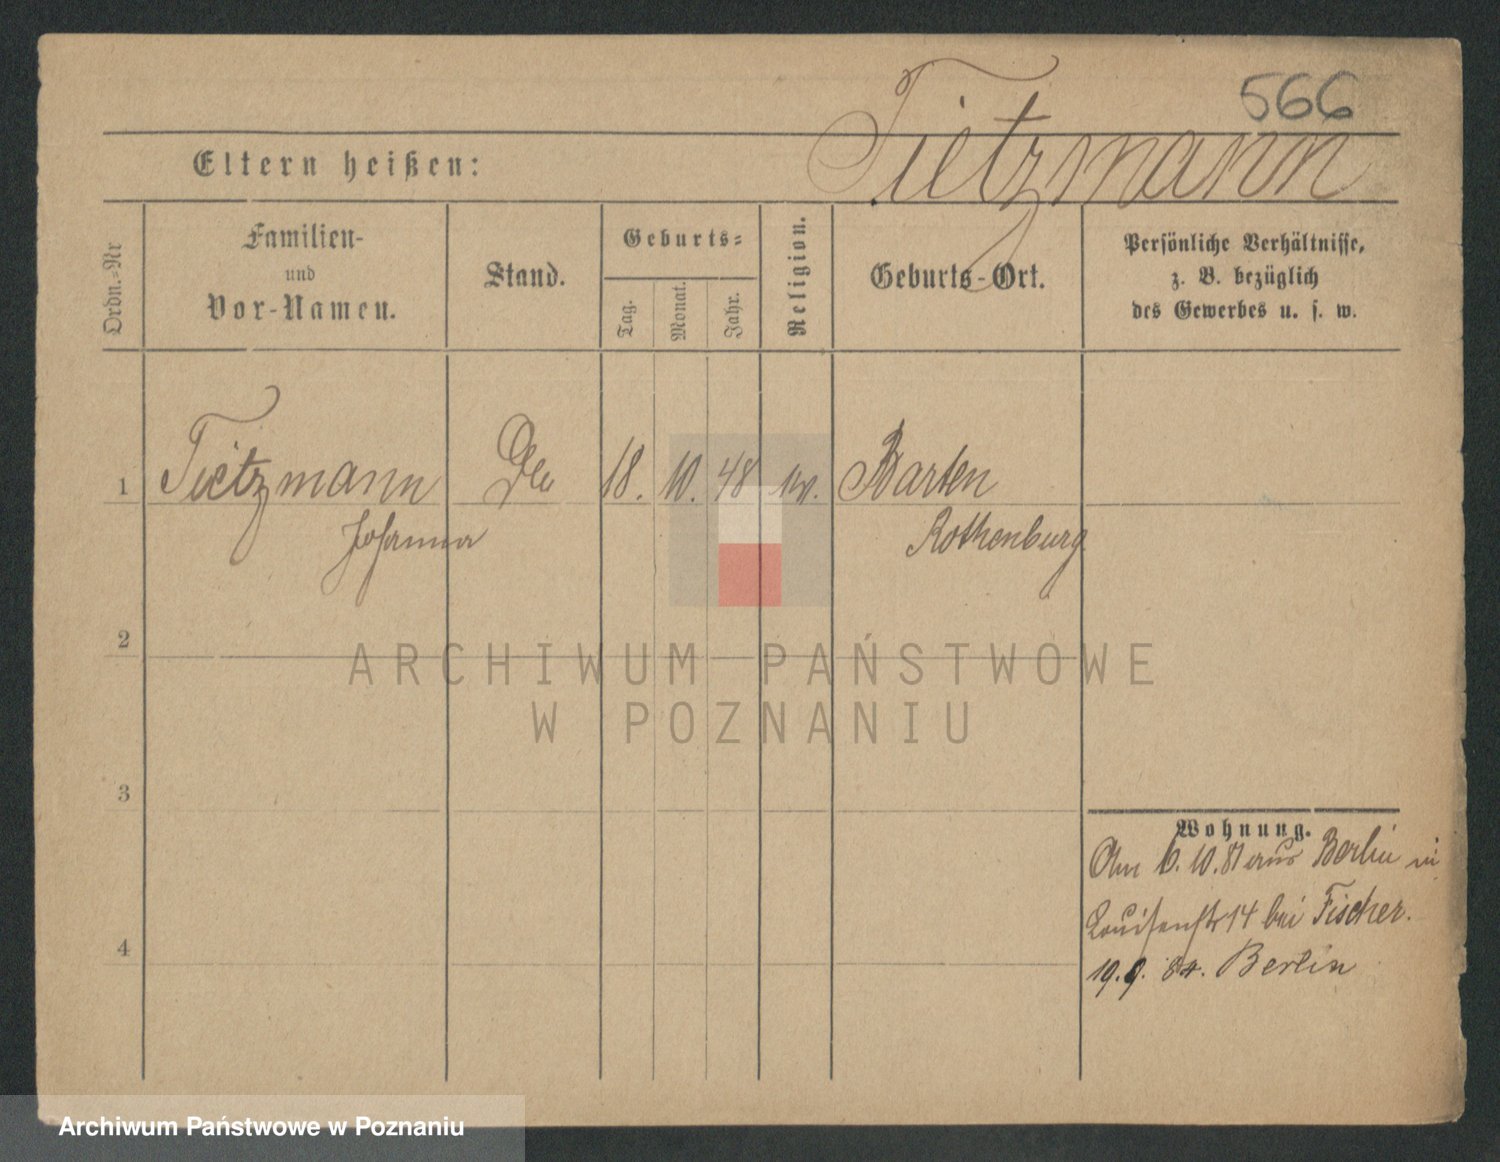 566
Tietzmann
Eltern heißen:
Ordn.-Nr
Familien-
und
Vor-Namen.
Stand.
Geburts-
Tag.
Monat.
Jahr.
Religion.
Geburts-Ort.
Persönliche Verhältnisse,
z. B. bezüglich
des Gewerbes u. s. w.
1
Tietzmann
18. 10. 48
Barten
Johanna
Rothenburg
2
ARCHIWUM PAŃSTWOWE
W POZNANIU
3
Wohnung.
10. 81 aus Berlin in
Louisenstr 14 bei Fischer.
4
19. 9. 84. Berlin
Archiwum Państwowe w Poznaniu